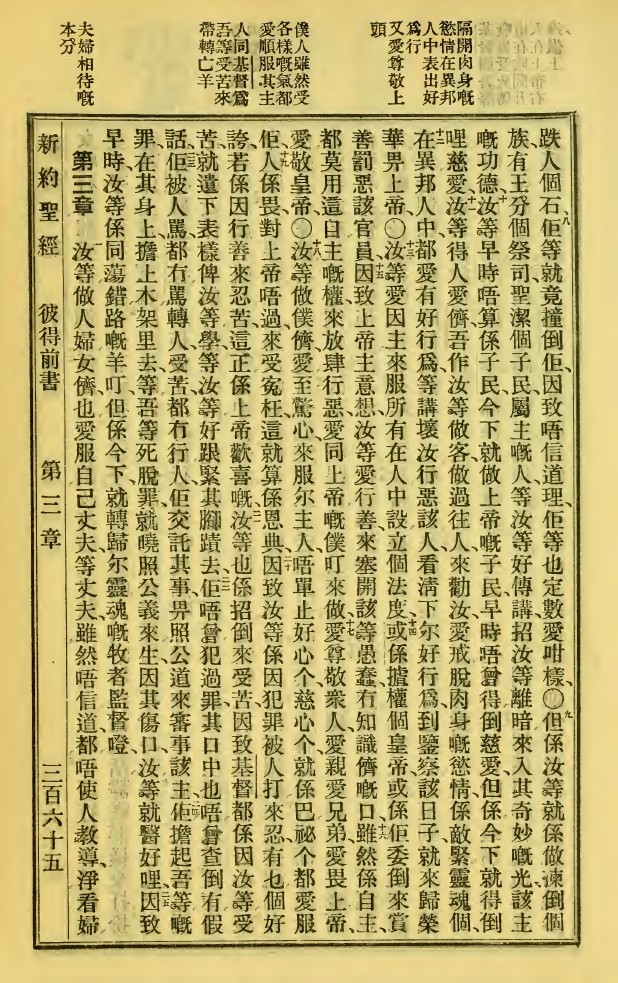 隔開肉身嘅
慾情在異邦
人中表出好
行為
又愛尊敬上
頭
僕人雖然受
各樣嘅氣都
愛順服其主
人同基督為
吾等受苦來
帶轉亡羊
夫婦相待嘅
本分
跌人個石、佢等就竟撞倒佢、因致唔信道理、佢等也定數愛咁樣、〇但係汝等就係做揀倒個
族、有王分個祭司、聖潔個子民、屬主嘅人等、汝等好傳講招汝等離暗來入其奇妙嘅光、該主
嘅功德、汝等早時唔算係子民、今下就做上帝嘅子民、早時唔曾得倒慈愛、但係今下就得倒
哩慈愛、汝等得人愛儕、吾作汝等做客做過往人來勸汝、愛戒脫肉身嘅慾情、係敵緊靈魂個、
在異邦人中、都愛有好行為、等講壞汝行惡該人、看淸下尔好行為、到鑒察該日子、就來歸榮
華畀上帝、〇汝等愛因主來服所有在人中設立個法度、或係揸權個皇帝、或係佢委倒來賞
善罰惡該官員、因致上帝主意、想汝等愛行善、來塞開該等愚蠢冇知識儕嘅口、雖然係自主、
都莫用這自主嘅權來放肆行惡、愛同上帝嘅僕叮來做、愛尊敬衆人、愛親愛兄弟、愛畏上帝、
愛敬皇帝、〇汝等做僕儕、愛至驚心來服尔主人、唔單止好心个慈心个、就係巴祕个都愛服
佢、人係畏對上帝唔過、來受寃枉、這就算係恩典、因致汝等係因犯罪被人打來忍、有乜個好
誇、若係因行善來忍苦、這正係上帝歡喜嘅、汝等也係招倒來受苦、因致基督都係因汝等受
苦、就遺下表樣俾汝等學、等汝等好跟緊其脚蹟去、佢唔曾犯過罪、其口中也唔曾查倒有假
話、佢被人罵、都冇罵轉人、受苦都冇行人、佢交託其事畀照公道來審事該主、佢擔起吾等嘅
罪在其身上、擔上木架里去、等吾等死脫罪、就曉照公義來生、因其傷口、汝等就醫好哩、因致
早時汝等係同蕩錯路嘅羊叮、但係今下就轉歸尔靈魂嘅牧者監督噔、
第三章 汝等做人婦女儕、也愛服自己丈夫、等丈夫雖然唔信道、都唔使人教導、淨看婦
新約聖經 彼得前書 第三章 三百六十五